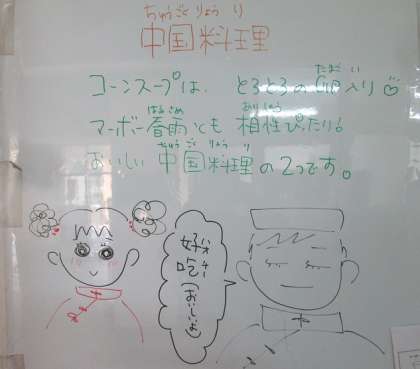 ちゅうごくりょうり
中国料理
コーンスープは、とろとろの卵入り♡
たまごい
マーボー春雨とも相性ぴったり!
はるさめ あいしょう
おいしい中国料理の2つです。
ちゅうごくりょうり
好吃
ハオチー
(おいしいよ)